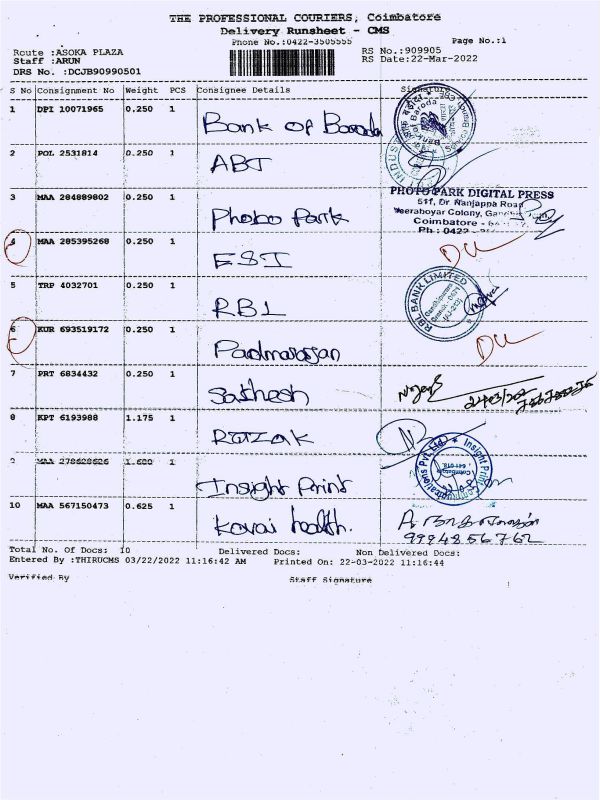 THE PROFESSIONAL COURIERS, Coimbatore
Delivery Runsheet - CMS
Phone No.:0422-3505555
Page No.:1
Route :ASOKA PLAZA
RS No.:909905
Staff :ARUN
RS Date:22-Mar-2022
DRS No. :DCJB90990501
S No Consignment No Weight PCS Consignee Details Signature
1 DPI 10071965 0.250 1 Bank of Baroda
2 POL 2531814 0.250 1 ABT
3 MAA 284889802 0.250 1 Photo Park
PHOTO PARK DIGITAL PRESS
511, Dr Nanjappa Road
Veeraboyar Colony,
Coimbatore -
Ph : 0422
4 MAA 285395268 0.250 1 ESI DL
5 TRP 4032701 0.250 1 RBL
RBL BANK LIMITED
6 KUR 693519172 0.250 1 Padmarajan DL
7 PRT 6834432 0.250 1 Sathesh
8 KPT 6193988 1.175 1 Razak
9 MAA 278628626 1.600 1 Insight Print
10 MAA 567150473 0.625 1 Kovai health.
9994856762
Total No. Of Docs: 10 Delivered Docs: Non Delivered Docs:
Entered By :THIRUCMS 03/22/2022 11:16:42 AM Printed On: 22-03-2022 11:16:44
Verified By Staff Signature